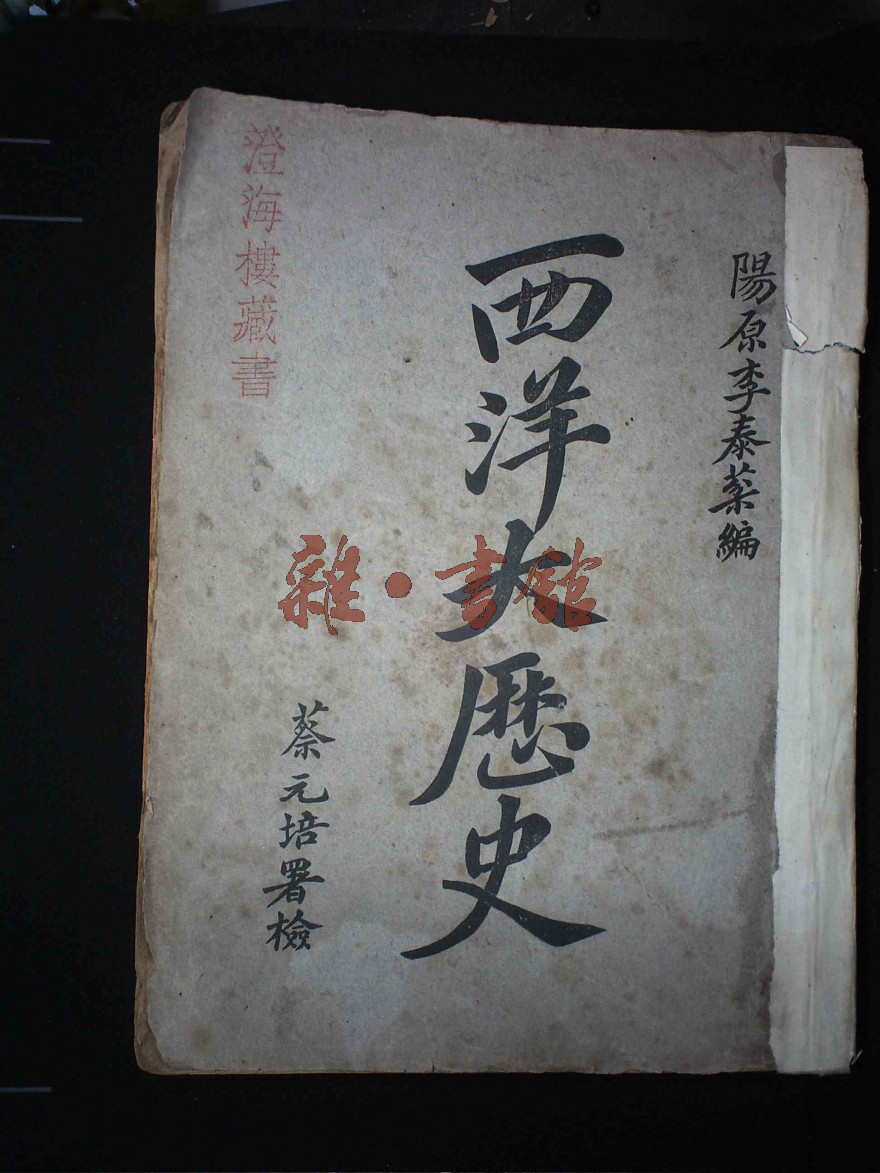 陽原李泰棻編
西洋大歷史
蔡元培署檢
澄海樓藏書
雜·書館